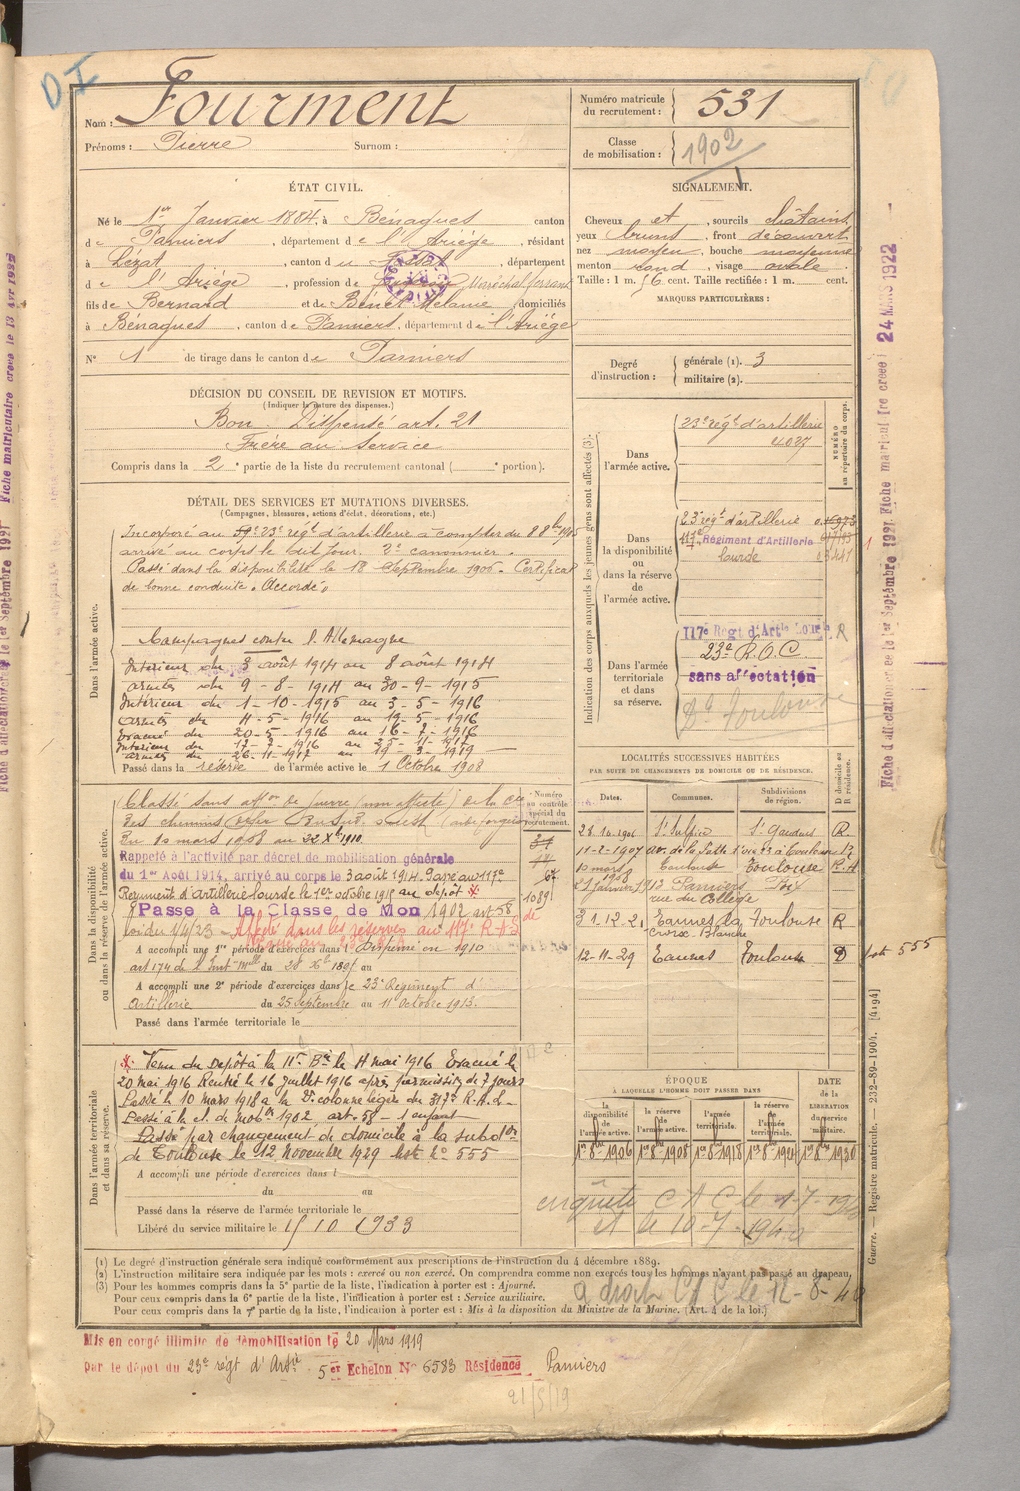 D I
Nom : Fourment
Prénoms : Pierre Surnom :
Numéro matricule du recrutement : 531
Classe de mobilisation : 1902
ÉTAT CIVIL.
Né le 1er Janvier 1884, à Bénagues canton
de Pamiers, département de l'Ariège, résidant
à Lézat, canton du Fossat, département
de l'Ariège, profession de Maréchal ferrant
fils de Bernard et de Bénet Mélanie domiciliés
à Bénagues, canton de Pamiers, département de l'Ariège
N° 1 de tirage dans le canton de Pamiers
SIGNALEMENT.
Cheveux et, sourcils châtains
yeux bruns, front découvert
nez moyen, bouche moyenne
menton rond, visage ovale.
Taille : 1 m. 56 cent. Taille rectifiée : 1 m. cent.
MARQUES PARTICULIÈRES :
Degré d'instruction : générale (1). 3
militaire (2).
DÉCISION DU CONSEIL DE REVISION ET MOTIFS.
(Indiquer la nature des dispenses.)
Bon. Dispensé art. 21
Frère au Service
Compris dans la 2e partie de la liste du recrutement cantonal ( e portion).
DÉTAIL DES SERVICES ET MUTATIONS DIVERSES.
(Campagnes, blessures, actions d'éclat, décorations, etc.)
Dans l'armée active.
Incorporé au 23e régt d'artillerie à compter du 8 8bre 1905
arrivé au corps le dit jour, 2e canonnier.
Passé dans la disponibilité le 18 Septembre 1906. Certificat
de bonne conduite "Accordé"
Campagnes contre l'Allemagne
Intérieur du 3 août 1914 au 8 août 1914
armées du 9-8-1914 au 30-9-1915
Intérieur du 1-10-1915 au 3-5-1916
armées du 4-5-1916 au 19-5-1916
Evacué du 20-5-1916 au 16-7-1916
Intérieur du 17-7-1916 au 25-11-1917
armées du 26-11-1917 au 19-3-1919
Passé dans la réserve de l'armée active le 1 Octobre 1908
Dans la disponibilité ou dans la réserve de l'armée active.
Classé sans affon de guerre (non affecté) de la Cie
des chemins de fer
Du 10 mars 1908 au 22 Xbre 1910.
Rappelé à l'activité par décret de mobilisation générale
du 1er Août 1914, arrivé au corps le 3 août 1914. Passé au 117e
Régiment d'Artillerie lourde le 1er octobre 1915 au dépôt *
Passé à la Classe de Mon 1902 art 58
loi du 1/4/23 Affecté dans les réserves au 117e
A accompli une 1re période d'exercices dans l Dispensé en 1910
art 174 de l'Inst Mlle du 28 Xbre 1895 au
A accompli une 2e période d'exercices dans le 23e Régiment d'
Artillerie du 25 Septembre au 11 Octobre 1913.
Passé dans l'armée territoriale le
Numéro au contrôle spécial du recrutement.
1089
Dans l'armée territoriale et dans sa réserve.
* Venu du Dépôt à la 11e Bie le 4 mai 1916 Evacué le
20 mai 1916 Rentré le 16 juillet 1916 après permission de 7 jours
Passé le 10 mars 1918 à la 2e colonne légère du 317e R.A.L.
Passé à la cl. de mobon 1902 art. 58 - 1 enfant
Passé par changement de domicile à la subdon
de Toulouse le 12 novembre 1929 liste n° 555
A accompli une période d'exercices dans l
du au
Passé dans la réserve de l'armée territoriale le
Libéré du service militaire le 15 10 1933
Indication des corps auxquels les jeunes gens sont affectés (3).
NUMÉRO au répertoire du corps.
Dans l'armée active.
23e régt d'artillerie
4027
Dans la disponibilité ou dans la réserve de l'armée active.
23e régt d'artillerie
117e Régiment d'Artillerie
lourde
Dans l'armée territoriale et dans sa réserve.
117e Régt d'Artie Lourde
23e R.O.C.
sans affectation
Dt Toulouse
LOCALITÉS SUCCESSIVES HABITÉES
PAR SUITE DE CHANGEMENTS DE DOMICILE OU DE RÉSIDENCE.
Dates. Communes. Subdivisions de région. D domicile ou R résidence.
28.10.1906 St Sulpice St Gaudens R.
11-2-1907
10 mars 1908 Toulouse Toulouse R.
1 janvier 1913 Pamiers Foix
rue du Collège
31.12.21 Eaunes Toulouse R
Croix Blanche
12-11-29 Eaunes Toulouse D liste 555
ÉPOQUE
À LAQUELLE L'HOMME DOIT PASSER DANS
la disponibilité de l'armée active.
la réserve de l'armée active.
l'armée territoriale.
la réserve de l'armée territoriale.
DATE de la LIBÉRATION du service militaire.
1er 8bre 1906 1er 8bre 1908 1er 8bre 1918 1er 8bre 1924 1er 8bre 1930
enquête C A C le 1-7-1940
et le 10-7-1940
a droit C A C le 12-8-40
(1) Le degré d'instruction générale sera indiqué conformément aux prescriptions de l'instruction du 4 décembre 1889.
(2) L'instruction militaire sera indiquée par les mots : exercé ou non exercé. On comprendra comme non exercés tous les hommes n'ayant pas passé au drapeau.
(3) Pour les hommes compris dans la 5e partie de la liste, l'indication à porter est : Ajourné.
Pour ceux compris dans la 6e partie de la liste, l'indication à porter est : Service auxiliaire.
Pour ceux compris dans la 7e partie de la liste, l'indication à porter est : Mis à la disposition du Ministre de la Marine. (Art. 4 de la loi.)
Mis en congé illimité de démobilisation le 20 Mars 1919
par le dépôt du 23e régt d'Artie 5er Echelon N° 6583 Résidence Pamiers
21/5/19
Guerre. — Registre matricule. — 232-89-1904. [4194]
Fiche d'affectation créée le 1er Septembre 1927 Fiche matricule créée le 24 MARS 1922
Fiche d'affectation créée le 1er Septembre 1927 Fiche matriculaire créée le